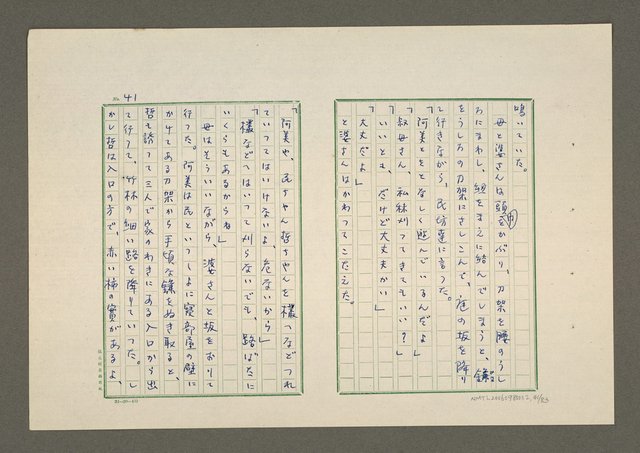 鳴いていた。
母と婆さんは頭巾をかぶり、刀架を腰のうし
ろにまわし、紐をまえに結んでしまうと、鎌
をうしろの刀架にさしこんで、庭の坂を降り
て行きながら、民坊達に言った。
「阿美とおとなしく遊んでいるんだよ」
「叔母さん、私絲刈ってきてもいい？」
「いいとも、だけど大丈夫かい」
「大丈だよ」
と婆さんはかわってこたえた。
No. 41
「阿美や、民ちゃん哲ちゃんを欉つなどつれ
ていってはいけないよ、危ないから」
「欉などへはいって刈らないでも、路ばたに
いくらもあるからね」
母はそういいながら、婆さんと坂をおりて
行った。阿美は民といっしょに寝部屋の壁に
かけてある刀架から手頃な鎌をぬき取ると、
哲も誘って三人で家のわきにある入口から出
て行って、竹林の細い路を降りていった。し
かし哲は入口の方で、赤い柿の実があるよ、